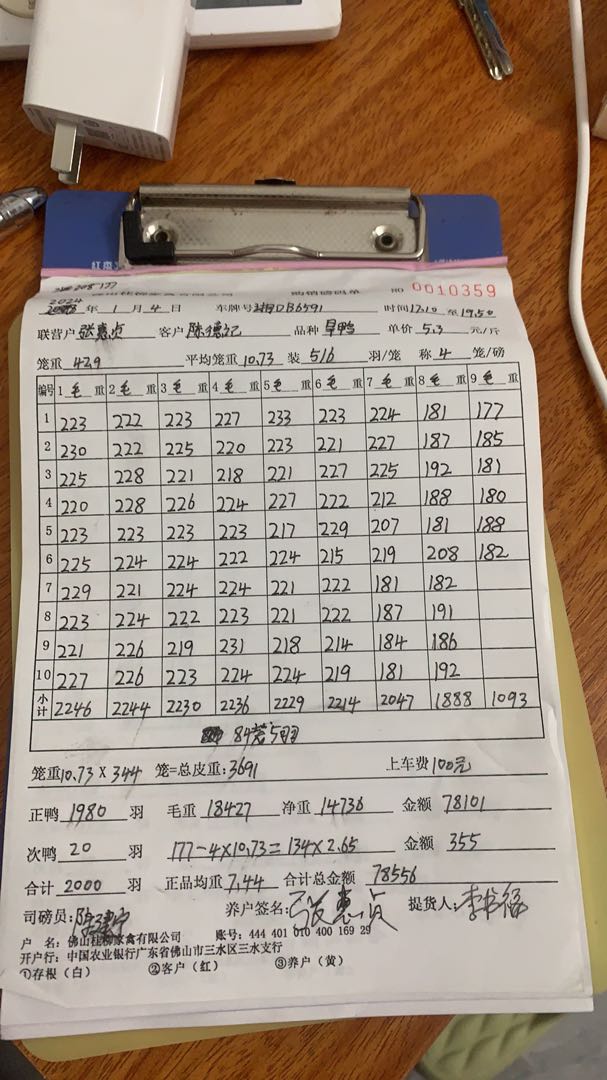 购销磅码单 NO 0010359
2024 年 1 月 4 日 车牌号 湘DB6591 时间 17.10 至 19.50
联营户 张惠贞 客户 陈德记 品种 旱鸭 单价 5.3 元/斤
笼重 42.9 平均笼重 10.73 装 5/6 羽/笼 称 4 笼/磅
编号 1 毛 重 2 毛 重 3 毛 重 4 毛 重 5 毛 重 6 毛 重 7 毛 重 8 毛 重 9 毛 重
1 223 222 223 227 233 223 224 181 177
2 230 222 225 220 223 221 227 187 185
3 225 228 221 218 221 227 225 192 181
4 220 228 226 224 227 222 212 188 180
5 223 223 223 223 217 229 207 181 188
6 225 224 224 222 224 215 219 208 182
7 229 221 224 224 221 222 181 182
8 223 224 222 223 221 222 187 191
9 221 226 219 231 218 214 184 186
10 227 226 223 224 224 219 181 192
小计 2246 2244 2230 2236 2229 2214 2047 1888 1093
84笼5羽
笼重 10.73 X 344 笼=总皮重: 3691 上车费 100元
正鸭 1980 羽 毛重 18427 净重 14736 金额 78101
次鸭 20 羽 177-4×10.73=134×2.65 金额 355
合计 2000 羽 正品均重 7.44 合计总金额 78556
司磅员: 养户签名: 张惠贞 提货人:
户 名: 佛山桂柳家禽有限公司 账号: 444 401 010 400 169 29
开户行: 中国农业银行广东省佛山市三水区三水支行
①存根（白） ②客户（红） ③养户（黄）